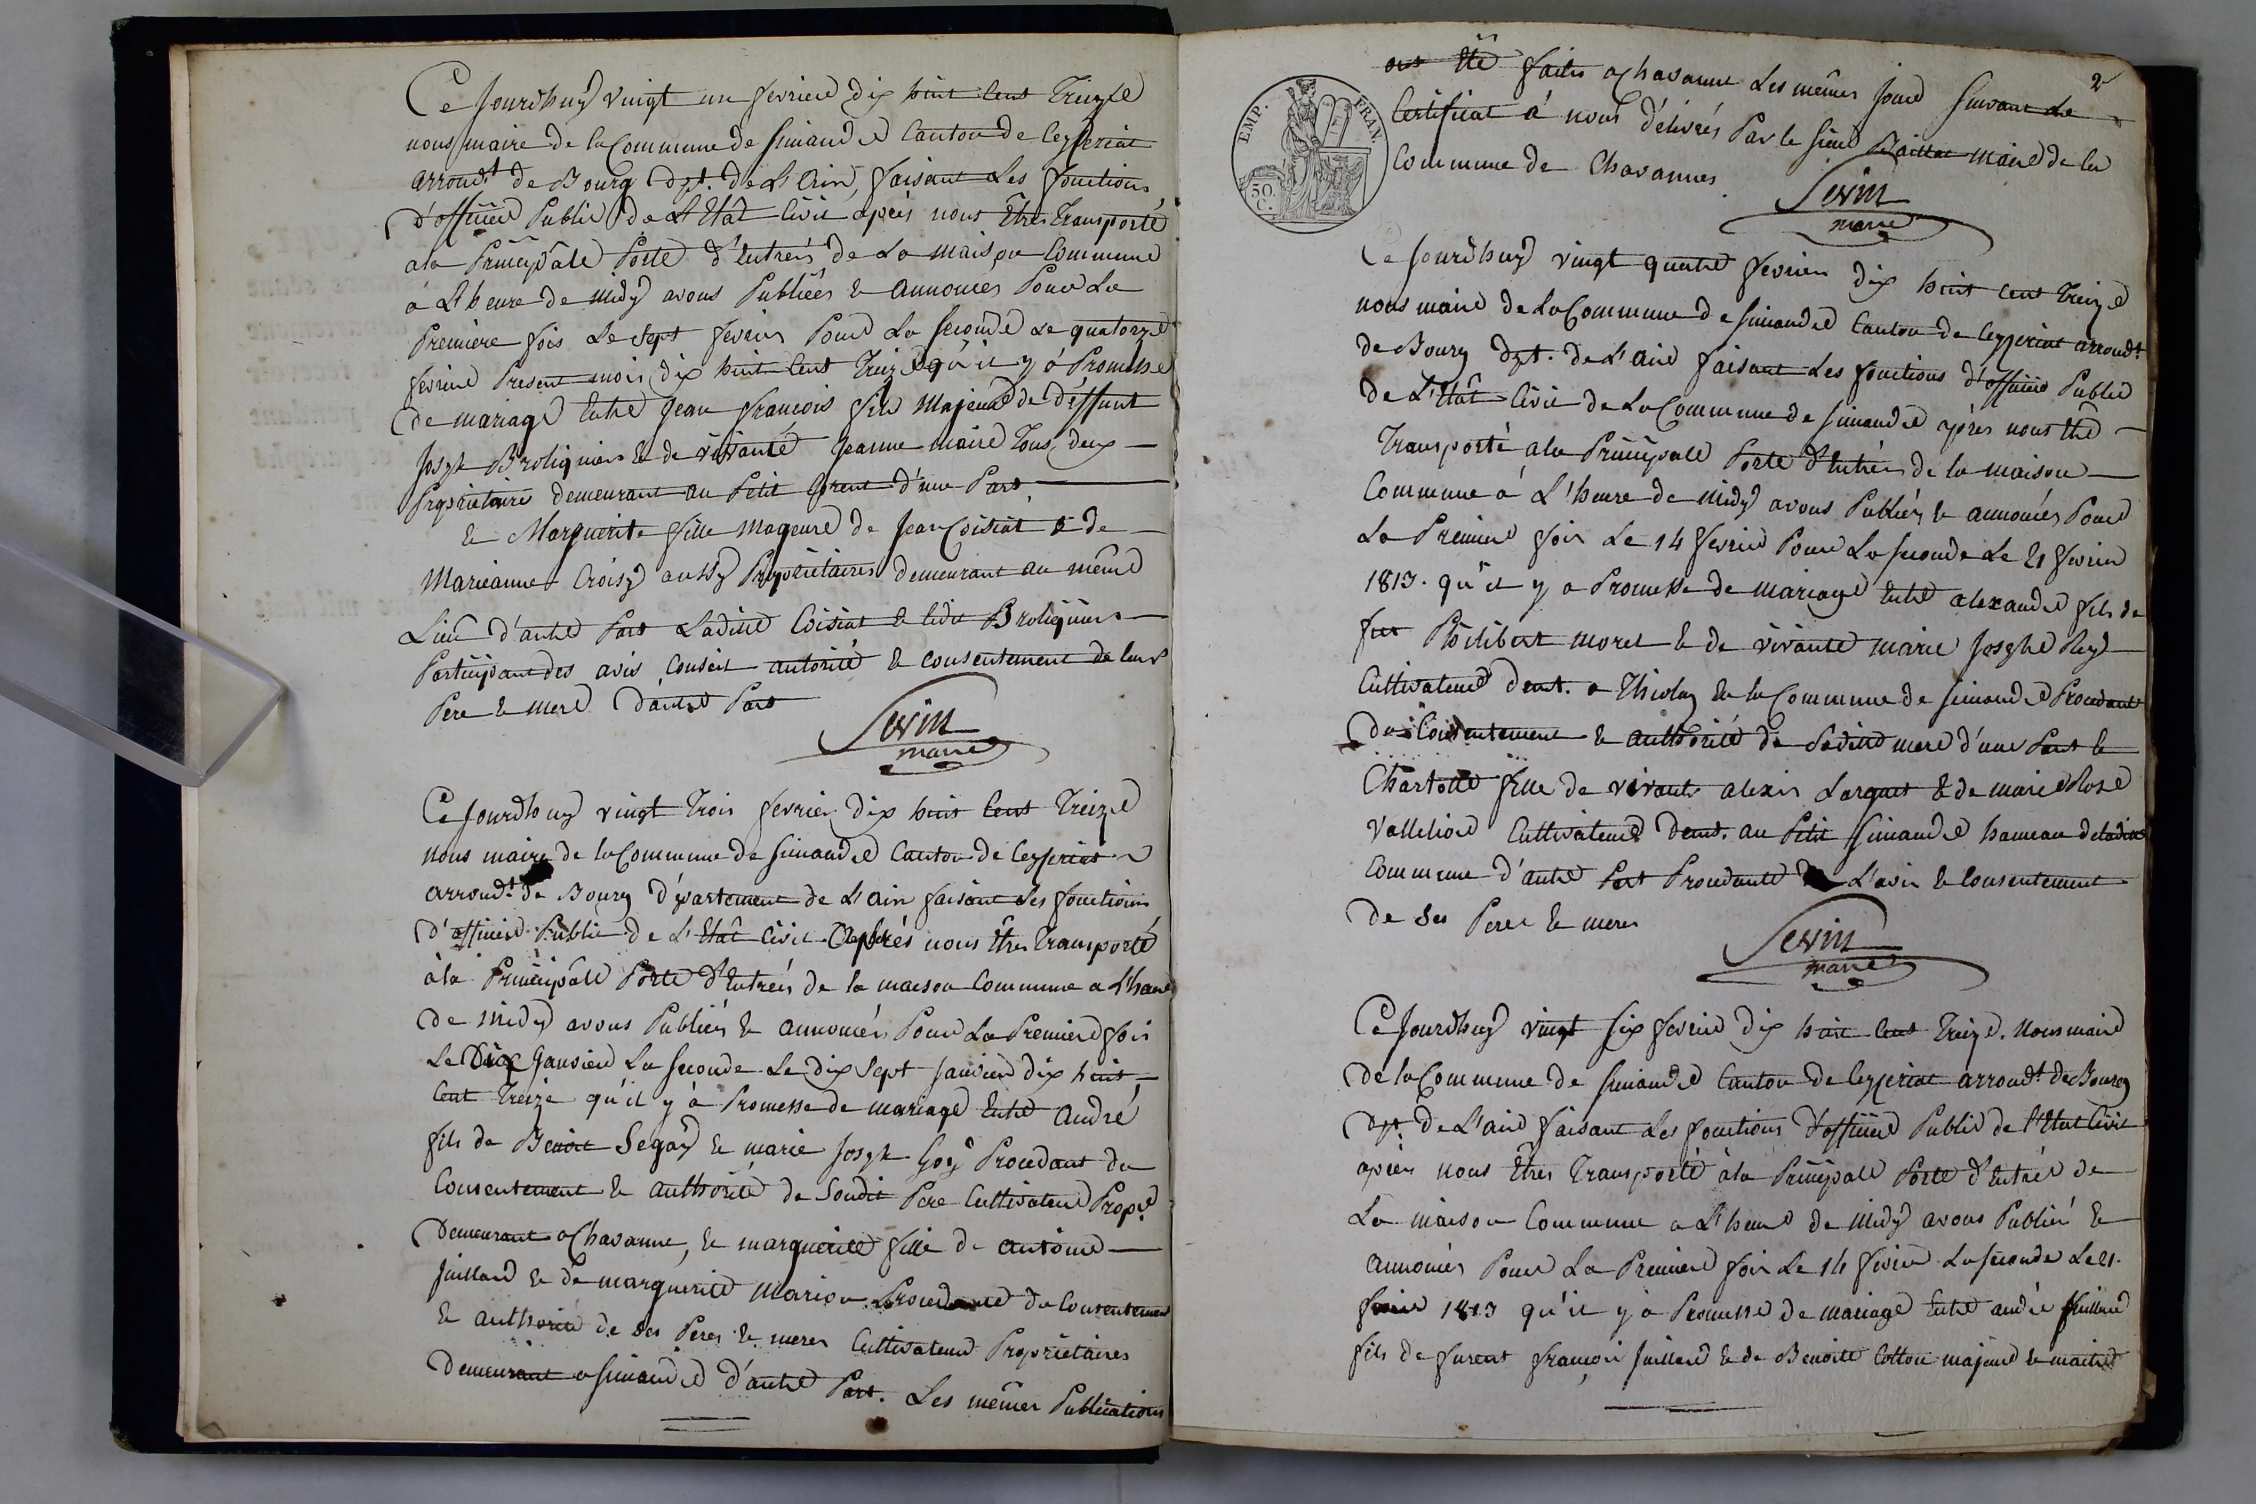 Ce Jourdhuy vingt un fevrier dix huit Cent Treize
nous maire de la Commune de Simandre Canton de Ceyzeriat
arrondt de Bourg dpt. de L'Ain, faisant Les fonctions
d'officier Public de L'Etat Civil après nous Etres Transporté
ala Principâle Porte d'Entreé de La maison Commune
a L'heure de midy avons Publiées & annoncés Pour La
Premiere fois Le sept fevrier Pour La seconde Le quatorze
fevrier Present mois dix huit Cent Treize qu'il y à Promesse
de mariage Entre Jean françois fils Majeur de deffunt
Joseph Broliquier & de vivante Jeanne maire Tous deux
Propriétaires demeurant au Petit d'une Part
& Marguerite fille Mageure de Jean Coisiat & de
Marieanne Croisy aussy Propriétaires demeurant au même
Lieu d'autre Part Ladite Coisiat & ledit Broliquier
Participant des avis Conseil autorité & consentement de leurs
Pere & mere d'autre Part
Sevin
maire
Ce Jourdhuy vingt Trois fevrier dix huit Cent Treize
nous maire de la Commune de Simandre Canton de Ceyzeriat
arrondt. de Bourg département de L'ain faisant Les fonctions
d'officier Public de L'Etat Civil Après nous êtres Transporté
àla Principâle Porte d'Entreés de la maison Commune a L'heure
de midy avons Publiées & annoncées Pour La Premiere fois
Le Dix Janvier La seconde Le dix sept Janvier dix huit
Cent Treize qu'il y à Promesse de mariage Entre André
fils de Benoit Segay & marie Joseph Goy Procedant du
Consentement & authorité de Soudit Pere Cultivateur Propre
Demeurant a Chavanne, & marguerite fille de antoine
Juillard & de marguerite Marion Procedante du Consentement
& authorité de ses Peres & meres Cultivateurs Propriétaires
Demeurant a Simandre d'autre Part. Les mêmes Publications
2
ont Eté faites a Chavanne Les mêmes Jours suivant Le
Certificat à nous délivrés Par le sieur maire de la
Commune de Chavannes
EMP. FRAN.
50. C.
Sevin
maire
Ce Jourdhuy vingt quatre fevrier dix huit cent Treize
nous maire de La Commune de Simandre Canton de Ceyzeriat arrondt
de Bourg dpt. de L'ain faisant Les fonctions d'officier Public
de L'Etat Civil de La Commune de Simandre après nous Etre
Transporté ala Principale Porte d'Entrée de la maison
Commune à L'heure de midy avons Publiés & annoncés Pour
La Premiere fois Le 14 fevrier Pour La seconde Le 21 fevrier
1813. qu'il y a Promesse de mariage Entre alexandre fils de
feu Philibert morel & de vivante marie Josephe Rey
Cultivateur demt. a Thiolay de la Commune de Simandre Procedant
Du Consentement & authorité de Ladite mere d'une Part &
Charlotte fille de vivants alexis Larguet & de marie Rose
Valleliore Cultivateurs demt. au Petit Simandre hameau de ladite
Commune d'autre Part Procedante De L'avis & Consentement
de Ses Peres & meres
Sevin
maire
Ce Jourdhuy vingt six fevrier dix huit Cent Treize. Nous maire
de la Commune de Simandre Canton de Ceyzeriat arrondt. de Bourg
dpt. de L'ain faisant Les fonctions d'officier Public de l'Etat Civil
après nous Etres Transporté àla Principale Porte d'Entrée de
La maison Commune a L'heure de midy avons Publié &
annoncés Pour La Premiere fois Le 14 fevrier La seconde Le 21.
fevrier 1813 qu'il y à Promesse de mariage Entre andré Juillard
fils de furent françois Juillard & de Benoite Cotton majeur & maitre